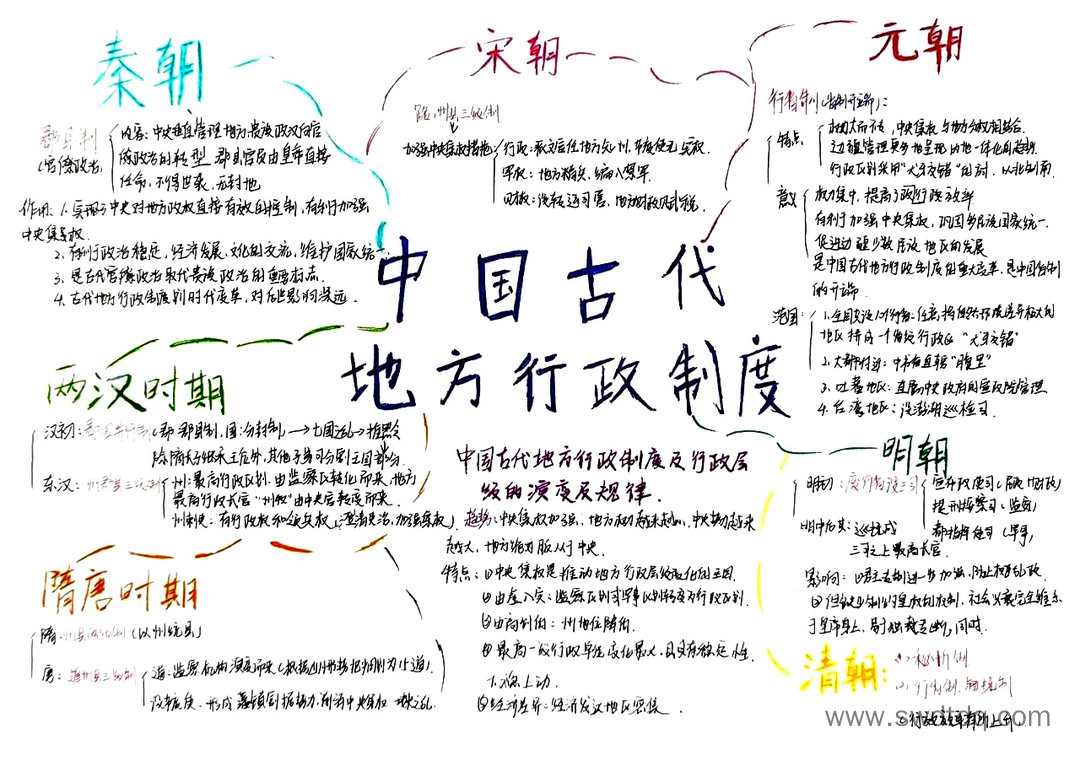 中国古代
地方行政制度
秦朝
郡县制
(官僚政治)
内容:中央垂直管理地方,贵族政权向官
僚政治的转型,郡县官员由皇帝直接
任命,不得世袭,无封地
作用:1.实现了中央对地方政权直接有效的控制,有利于加强
中央集权.
2.有利于政治稳定,经济发展、文化的交流,维护国家统一
3.是古代官僚政治取代贵族政治的重要标志
4.古代地方行政制度划时代变革,对后世影响深远.
宋朝
路,州,县三级制
加强中央集权措施
行政:派文官任地方知州,
军权:地方精兵,编入禁军
财权:设转运司管,地方财政赋税.
元朝
行省制(省制开端):
特点
权力大而不专,中央集权与地方分权相结合.
行政区划采用“犬牙交错”的原则,以北制南.
意义
权力集中,提高了行政效率
有利于加强中央集权,巩固多民族国家统一.
促进边疆少数民族地区的发展
是中国古代地方行政制度的重大变革,是中国省制
的开端.
范围:
地区拼成一个省级行政区“犬牙交错”
2.大都附近:中书省直辖“腹里”
3.吐蕃地区:直属中央政府的宣政院管理
4.台湾地区:设澎湖巡检司.
两汉时期
汉初:郡国并行制(郡:郡县制,国:分封制 → 七国之乱 → 推恩令
除嫡长子继承王位外,其他子弟可分割王国部分.
东汉:州郡县三级制
州:最高行政区划,由监察区转化而来,地方
最高行政长官“州牧”由中央官转变而来.
州刺史:有行政权和领兵权.
隋唐时期
隋:州县两级制(以州统县)
唐:道州县三级制
道:监察机构演变而来
设节度使,形成藩镇割据势力,削弱中央集权
中国古代地方行政制度及行政层
级的演变及规律.
趋势:中央集权加强,地方权力越来越小,中央权力越来
越大,地方绝对服从于中央.
特点:①中央集权是推动地方行政层级变化的主因
②由虚入实:监察区划或军事区划转变为行政区划.
④最高一级行政单位变化最大,县具有稳定性.
下稳上动.
⑤经济差异:经济发达地区密集.
明朝
明初:废行省设三司
宣布政使司(民政、财政)
提刑按察司(监察)
都指挥使司(军事)
明中后期:巡抚成
三司之上最高长官.
影响:①君主专制进一步加强,防止权臣乱政.
②但缺少制约皇权的机制,社会兴衰完全维系
于皇帝身上,
清朝:
www.swdtdq.com